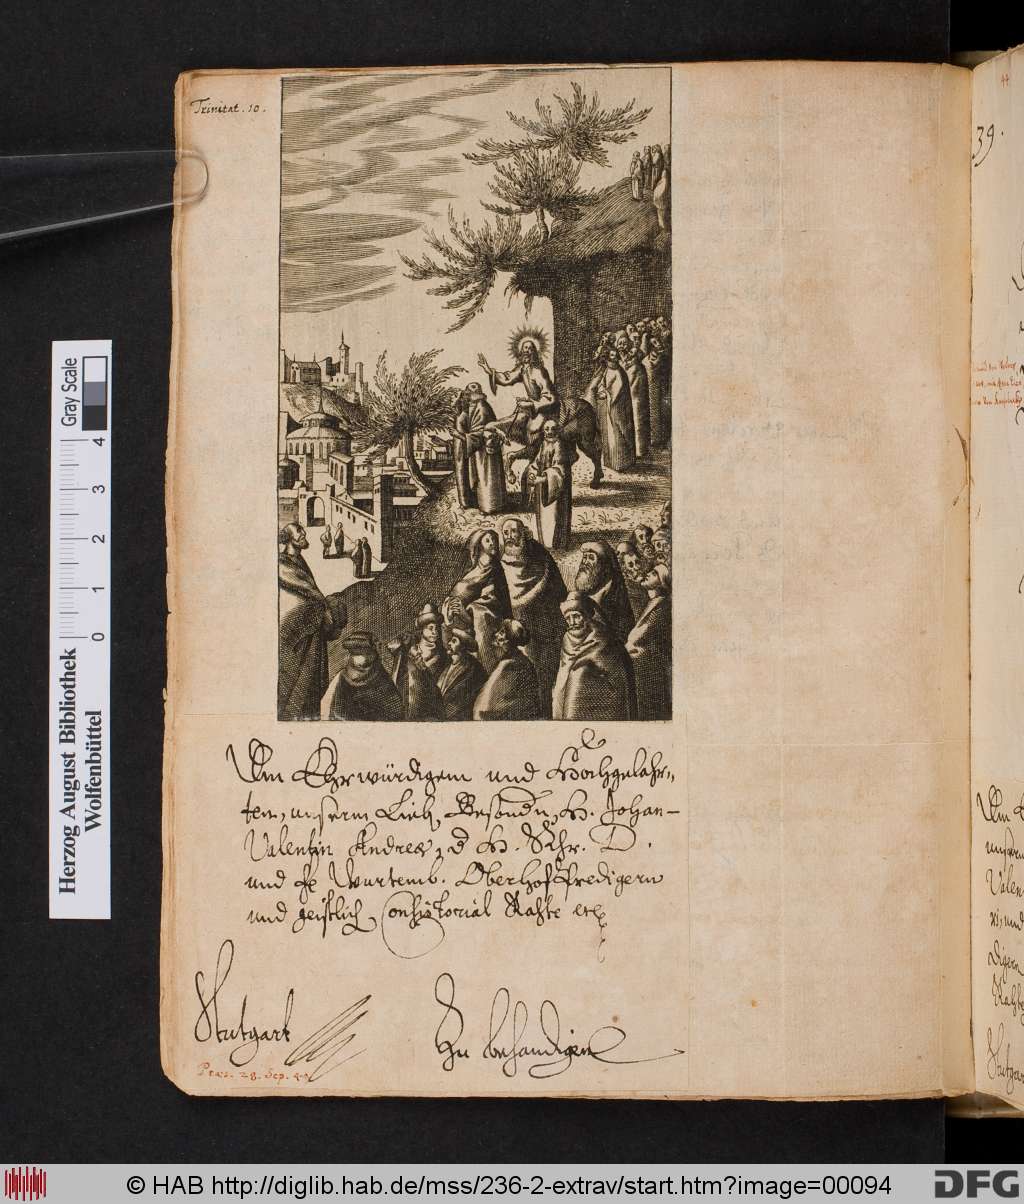 Trinitat. 10.
39.
Dem Ehrwürdigem und Hochgelahr-
ten, unserm Lieb. Besondn, H. Johan-
Valentin Andreæ, d H. Schr. D.
und fr Wurtemb. Oberhof Predigern
und geistlich Consistorial Rahte etc
Stutgart
Zu behandigen
Præs. 28. Sep.
Valen
digern
Rahte
Stutgar
Herzog August Bibliothek
Wolfenbüttel
Gray Scale
0 1 2 3 4
© HAB http://diglib.hab.de/mss/236-2-extrav/start.htm?image=00094
DFG